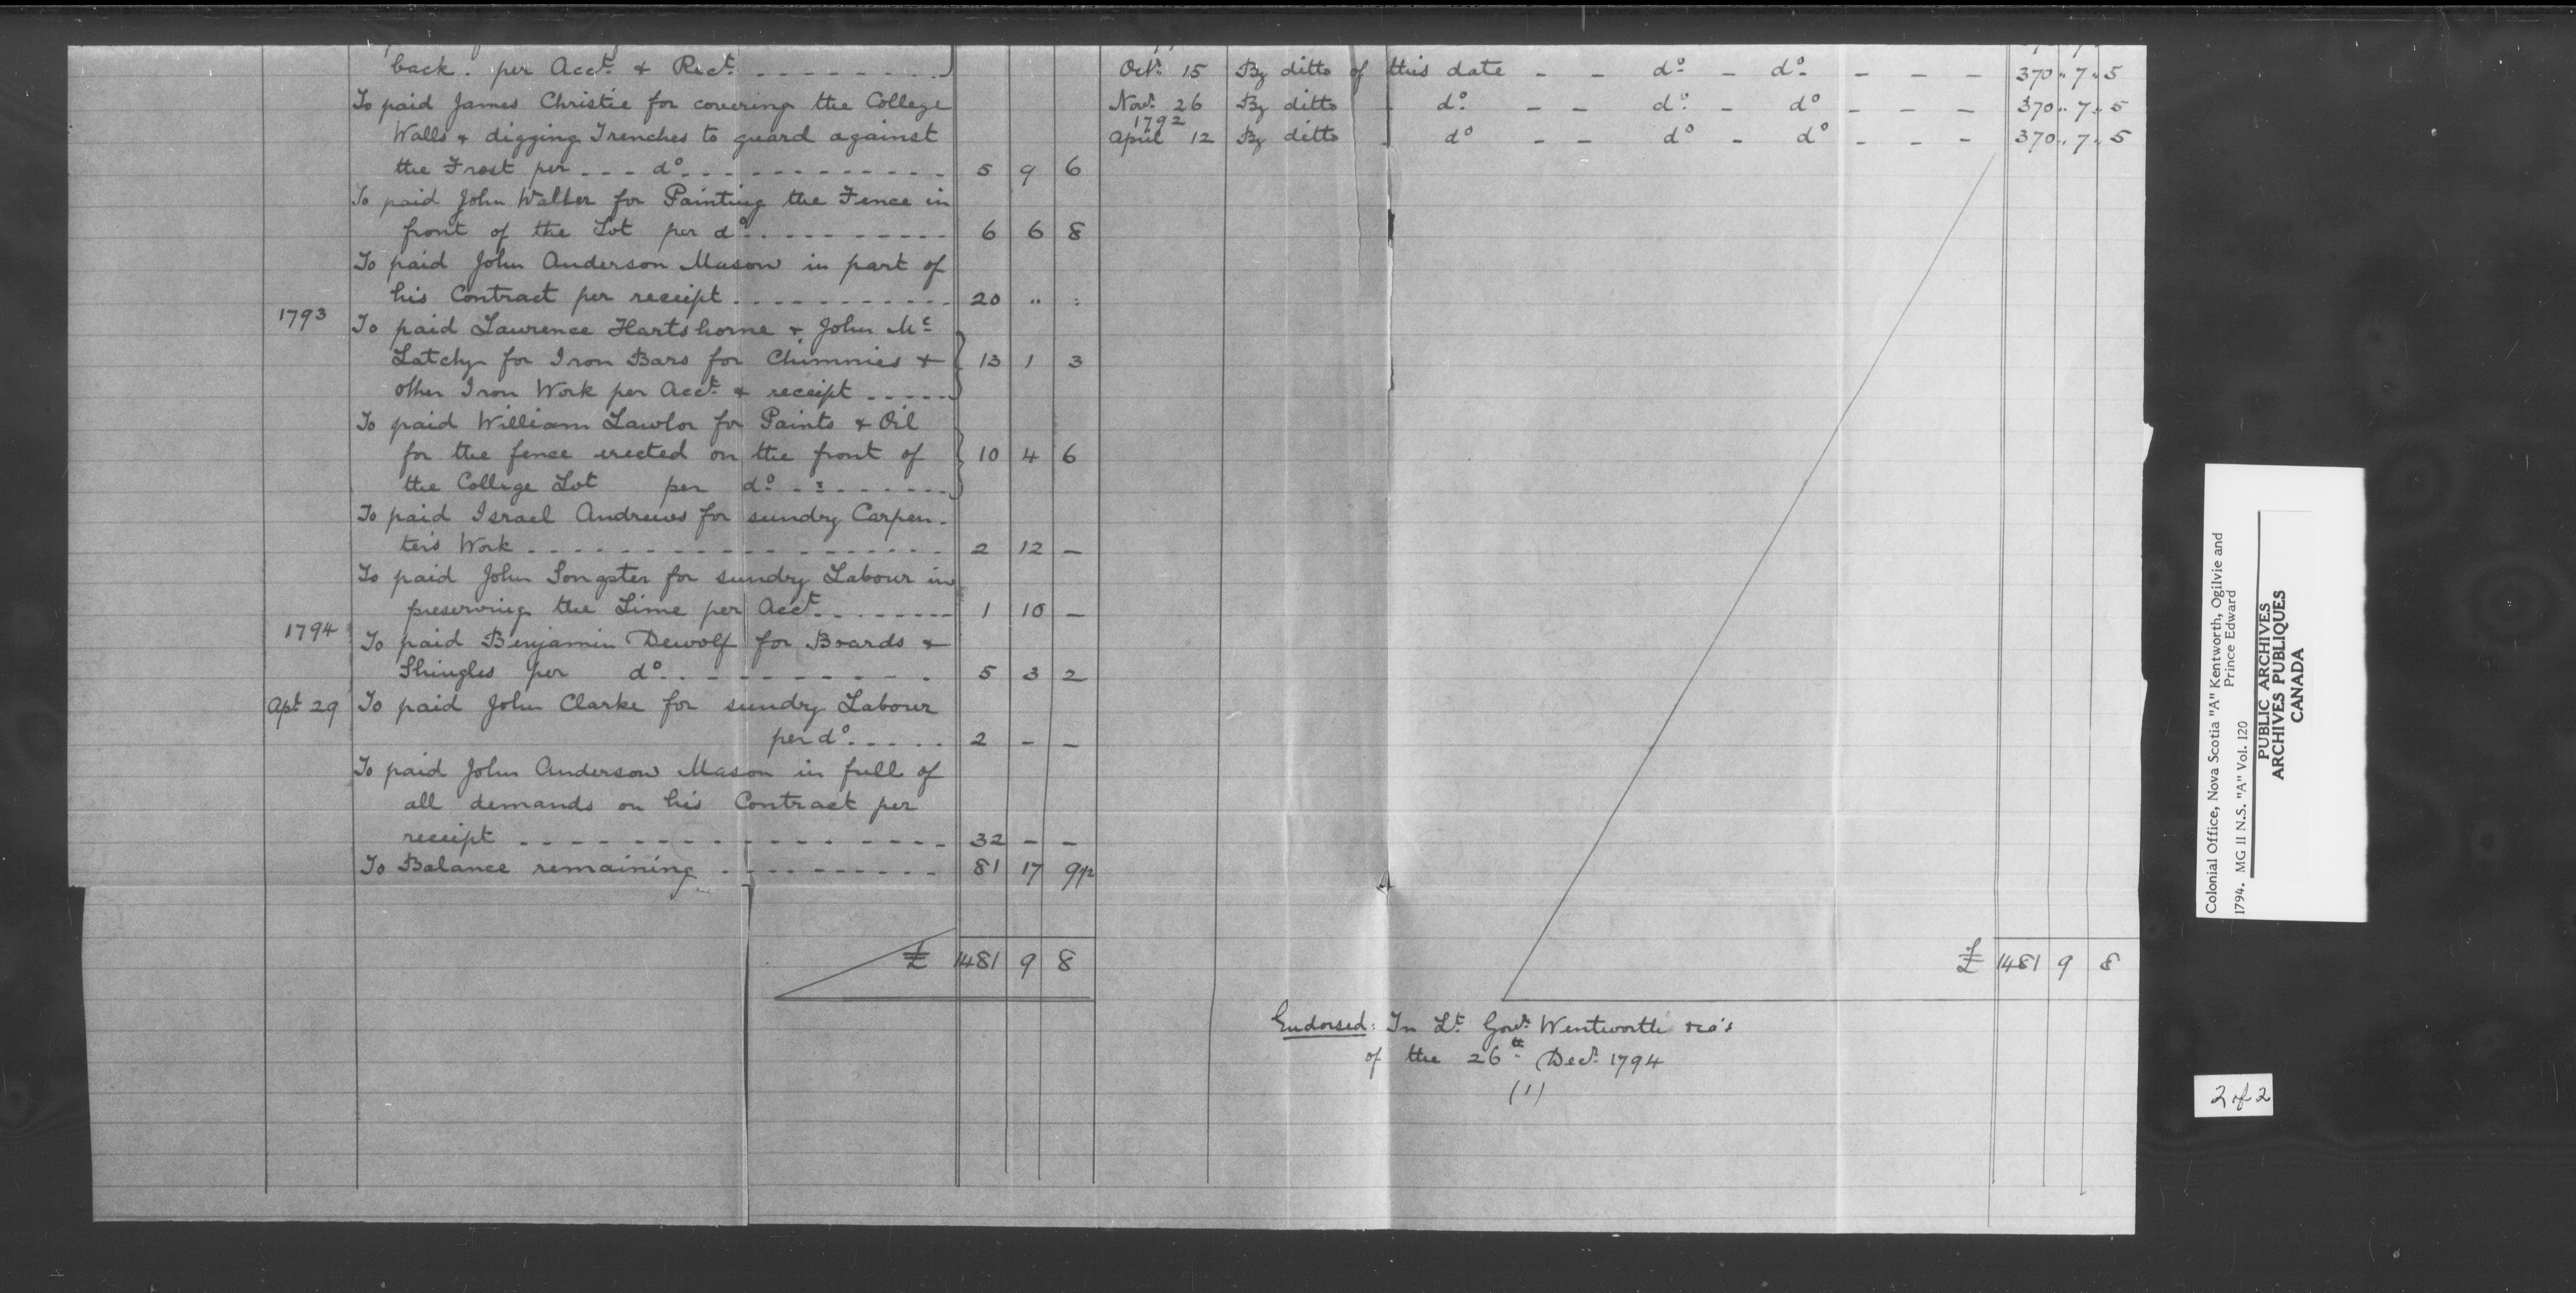 back. per Acct. & Rect. - - - - - - - -
To paid James Christie for covering the College
Walls & digging Trenches to guard against
the Frost per - - - do. - - - - - - - - - - - 5 9 6
To paid John Walker for Painting the Fence in
front of the Lot per do. - - - - - - - - - - 6 6 8
To paid John Anderson Mason in part of
his Contract per receipt - - - - - - - - - - 20 " :
1793 To paid Laurence Hartshorne & John Mc
Latchy for Iron Bars for Chimnies & 13 1 3
other Iron Work per Acct. & receipt - - - - -
To paid William Lawlor for Paints & Oil
for the fence erected on the front of 10 4 6
the College Lot per do. - : - - - - - -
To paid Israel Andrews for sundry Carpen-
ters Work - - - - - - - - - - - - - - - - 2 12 —
To paid John Songster for sundry Labour in
preserving the Lime per Acct. - - - - - - - 1 10 —
1794 To paid Benjamin Dewolf for Boards &
Shingles per do. - - - - - - - - - 5 3 2
Apl. 29 To paid John Clarke for sundry Labour
per do. - - - - 2 — —
To paid John Anderson Mason in full of
all demands on his Contract per
receipt - - - - - - - - - - - - - - - - 32 — —
To Balance remaining - - - - - - - - - - 81 17 9 1/2
£ 1481 9 8
Octr. 15 By ditto of this date - - do. - do. - - - 370 " 7 " 5
Novr. 26 By ditto - do. - - do. - do - - - 370 " 7 " 5
1792
April 12 By ditto - do - - do - do - - - 370 " 7 " 5
£ 1481 9 8
Endorsed: In Lt. Govr. Wentworth's
of the 26th. Decr. 1794
(1)
Colonial Office, Nova Scotia "A" Kentworth, Ogilvie and
Prince Edward
1794. MG 11 N.S. "A" Vol. 120
PUBLIC ARCHIVES
ARCHIVES PUBLIQUES
CANADA
2 of 2